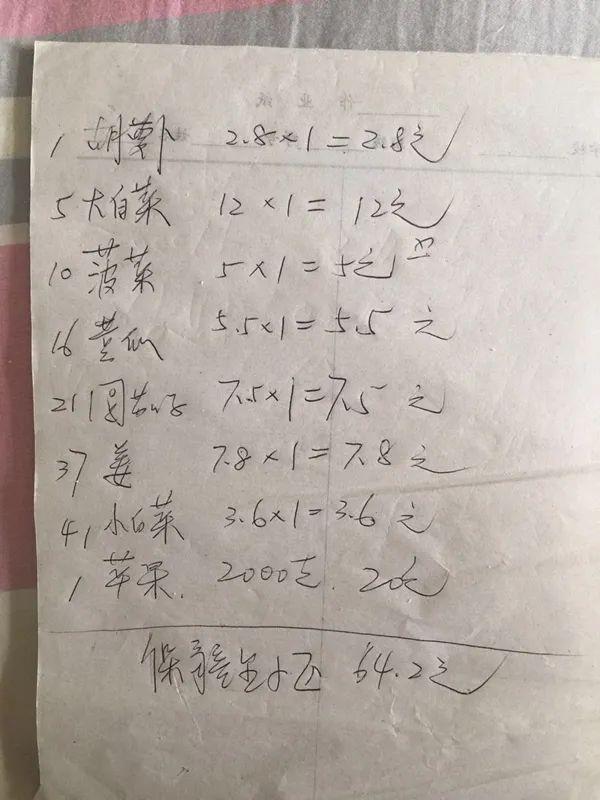 作业纸
1 胡萝卜 2.8×1=2.8元
5 大白菜 12×1= 12元
10 菠菜 5×1=5元
16 5.5×1=5.5 元
21 圆茄子 7.5×1=7.5 元
37 姜 7.8×1=7.8 元
41 小白菜 3.6×1=3.6 元
1 苹果. 2000克. 20元
64.2元